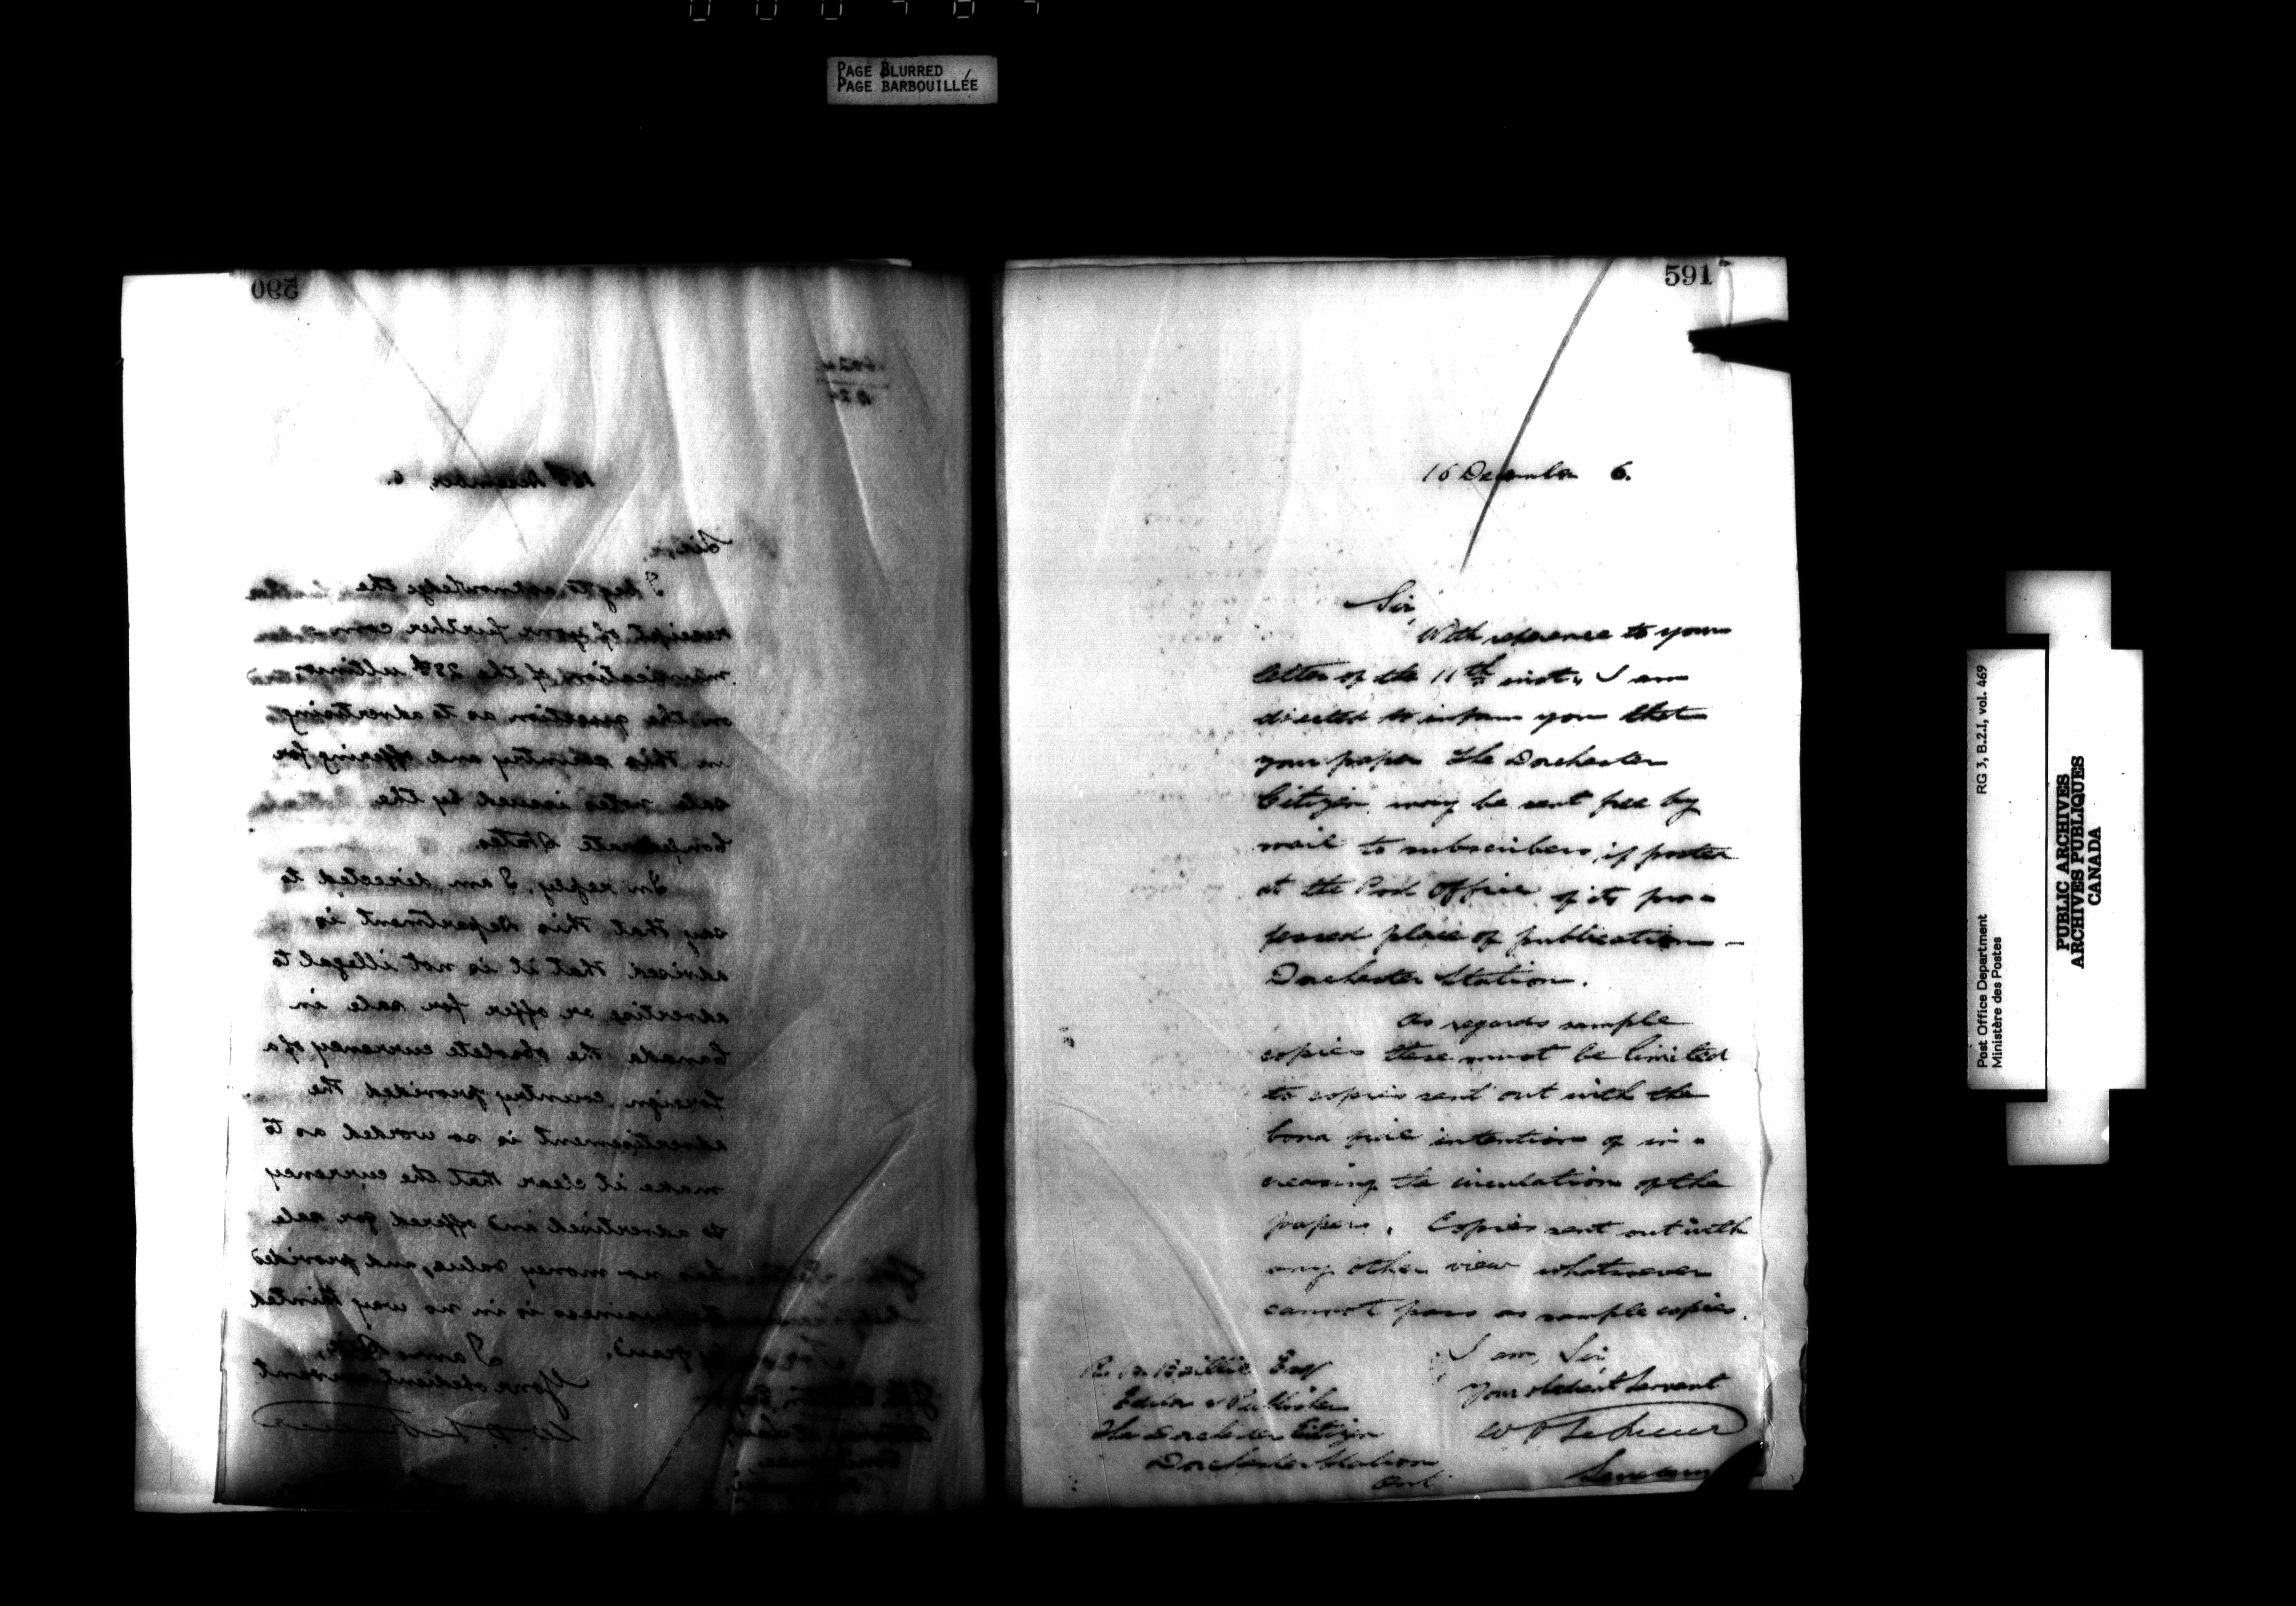 PAGE BLURRED
PAGE BARBOUILLÉE
590
16th December, 6.
I beg to acknowledge the
receipt of your further com
munication of the 28th ultimo,
on the question as to advertising
in this country and offering for
sale notes issued by the
Confederate States.
In reply, I am directed to
say that this Department is
advised that it is not illegal to
advertise or offer for sale in
Canada the obsolete currency of a
foreign country provided the
advertisement is so worded as to
make it clear that the currency
so advertised and offered for sale
has no money value, and provided
the business is in no way tainted
by fraud.
I am,
Your obedient servant
591
16 December 6.
Sir,
With reference to your
letter of the 11th inst. I am
directed to inform you that
your paper The Dorchester
Citizen may be sent free by
mail to subscribers, if posted
at the Post Office of its pro-
fessed place of publication -
Dorchester Station.
As regards sample
copies these must be limited
to copies sent out with the
bona fide intention of in-
creasing the circulation of the
paper. Copies sent out with
any other view whatsoever
cannot pass as sample copies.
I am, Sir,
Your obedient Servant
Secretary
Baillie Esq
Editor & Publisher
The Dorchester Citizen
Dorchester Station
Ont
Post Office Department
Ministère des Postes
RG 3, B.2.I, vol. 469
PUBLIC ARCHIVES
ARCHIVES PUBLIQUES
CANADA